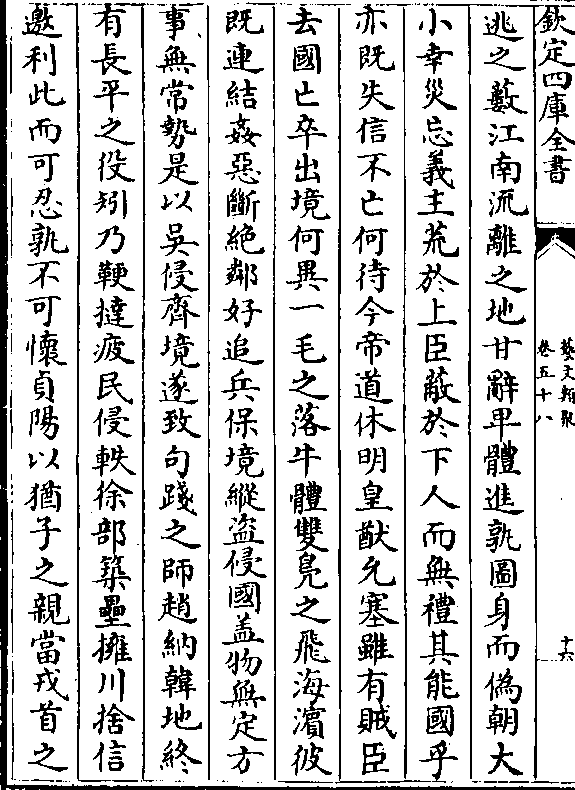 欽定四庫全書
藝文類聚
卷五十八
十六
逃之藪江南流離之地甘辭卑體進孰圖身而偽朝大
小幸災忘義主荒於上臣蔽於下人而無禮其能國乎
亦既失信不亡何待今帝道休明皇猷允塞雖有賊臣
去國亡卒出境何異一毛之落牛體雙鳧之飛海濵彼
既連結姦惡斷絶鄰好追兵保境縱盜侵國盖物無定方
事無常勢是以吳侵齊境遂致句踐之師趙納韓地終
有長平之役矧乃鞭撻疲民侵軼徐部築壘擁川捨信
邀利此而可忍孰不可懷貞陽以猶子之親當戎首之